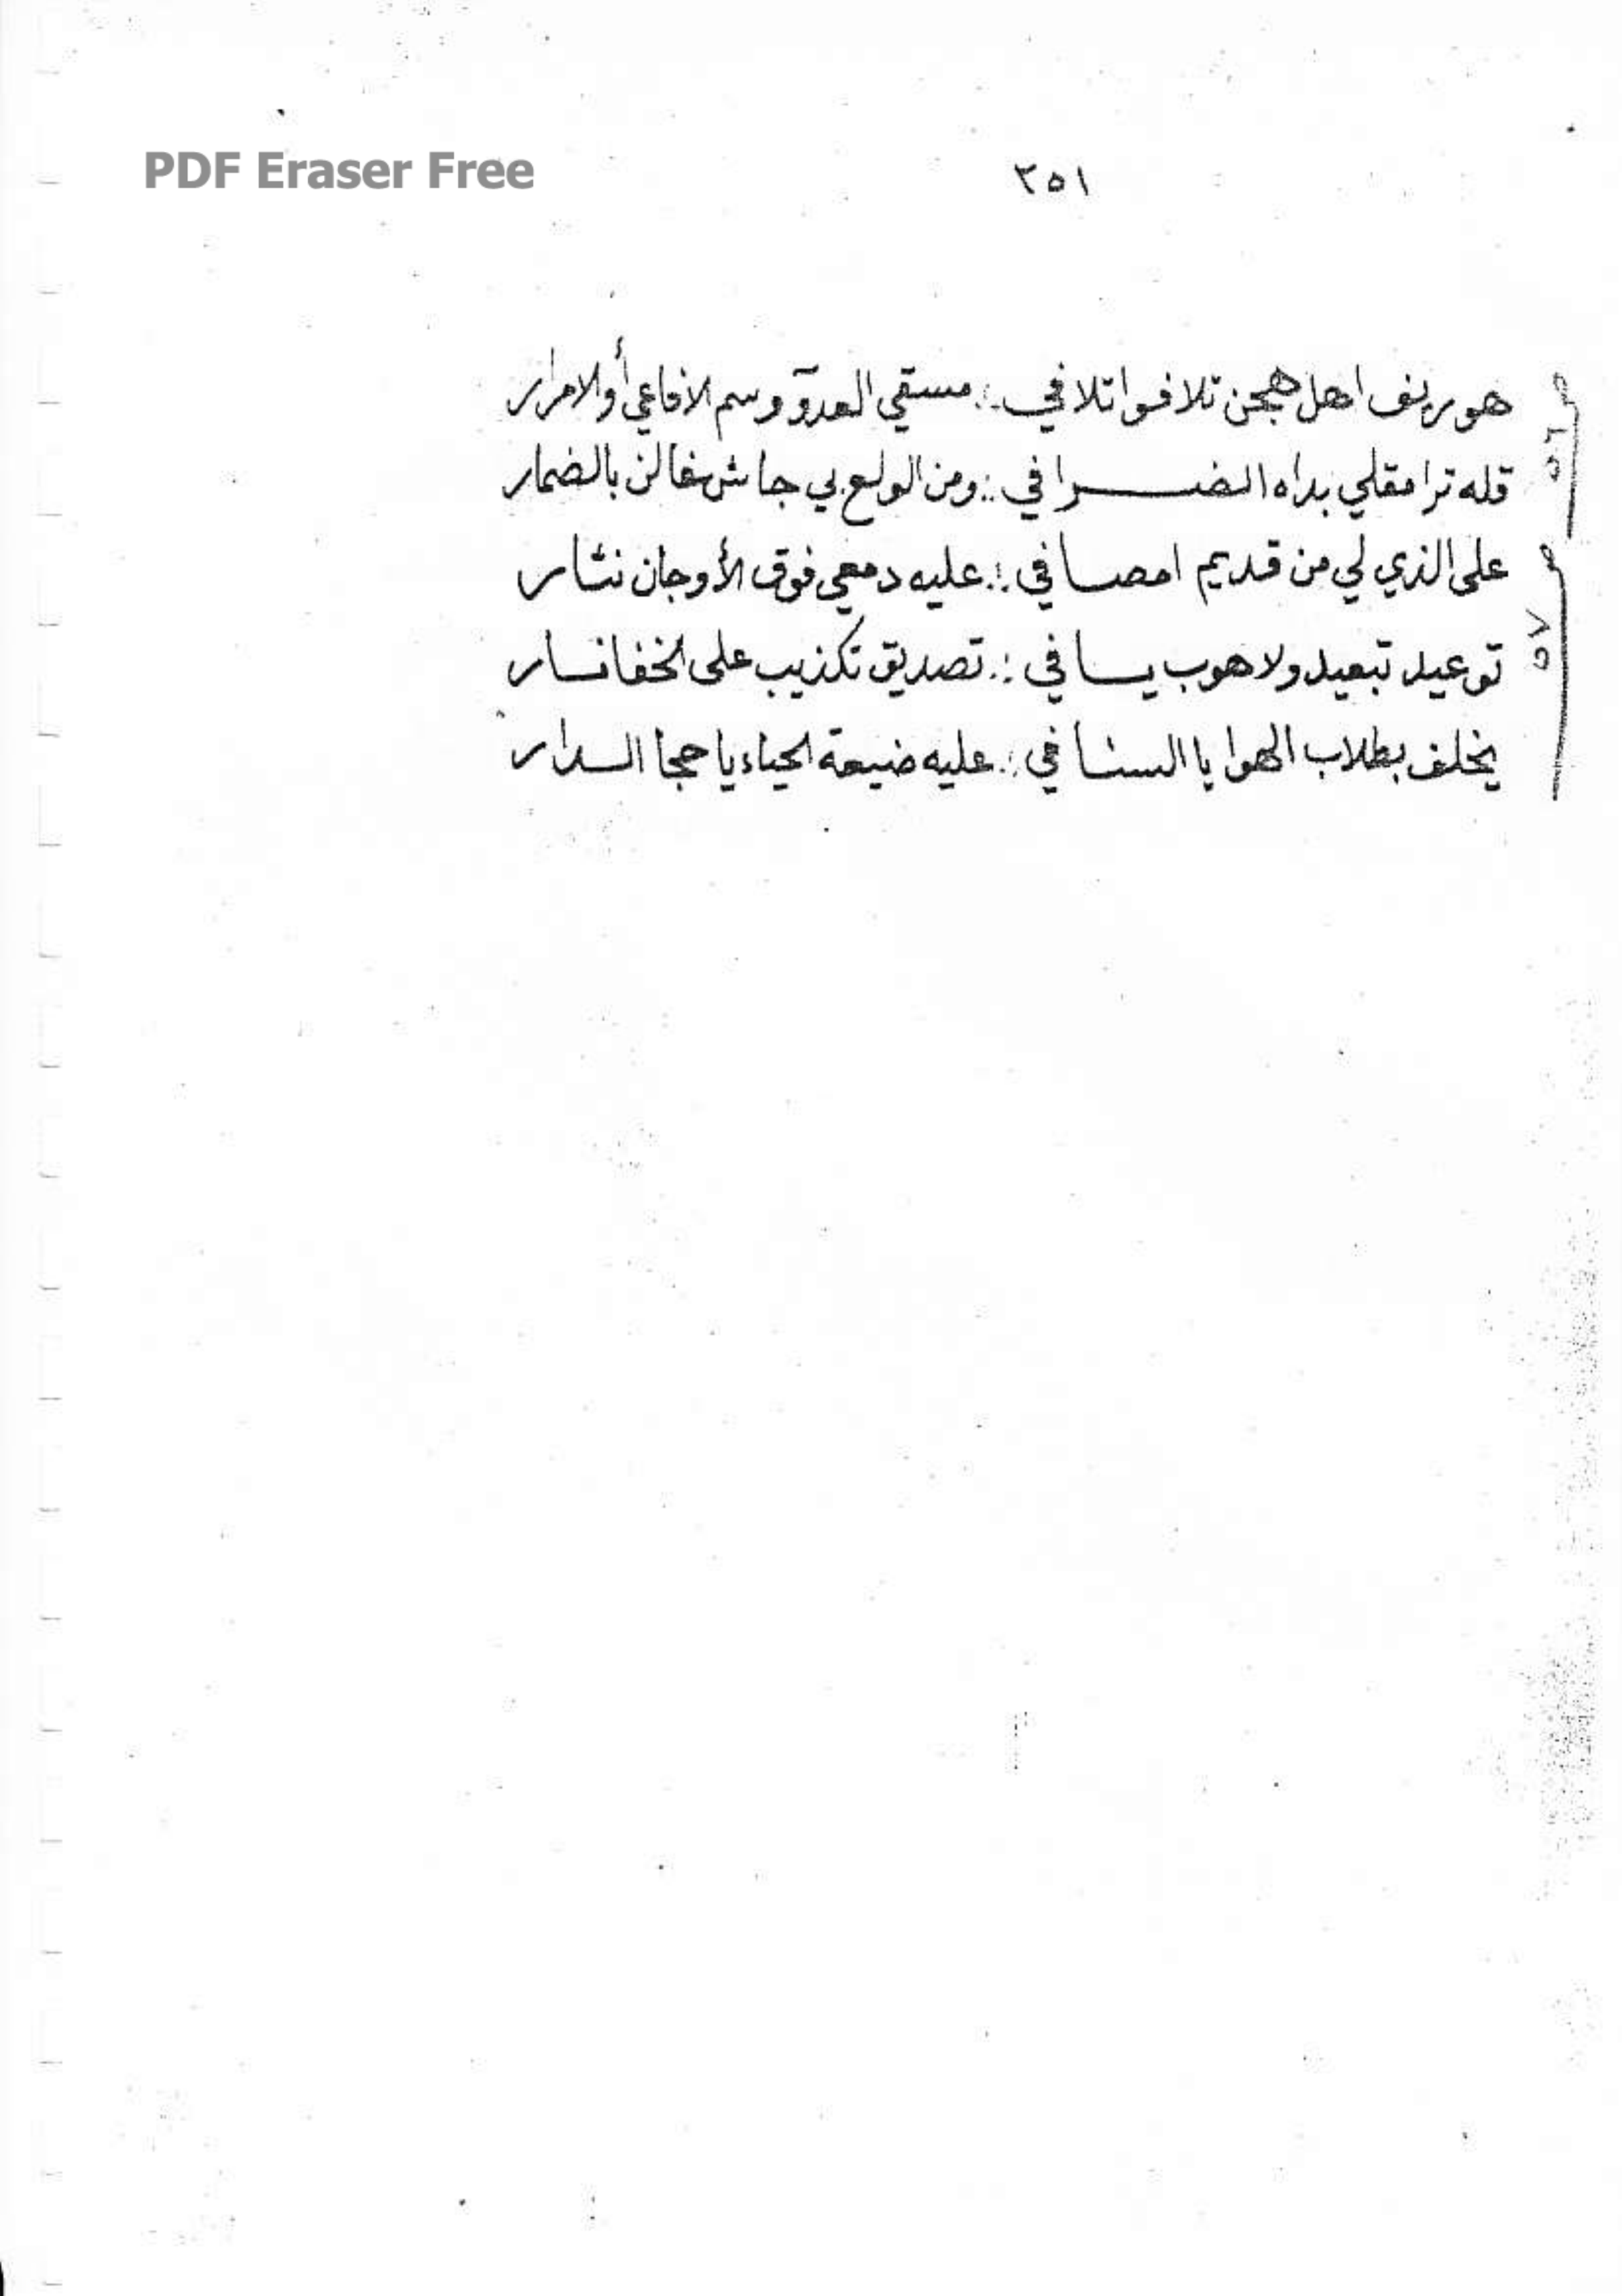 PDF Eraser Free
٣٥١
هو ريف اهل هجن تلافوا تلافي ∴ مسقي العدوّ وسم الافاعي أوالامرار
قله ترا مقلي بداه الضـرا في ∴ ومن الولع بي جاش بالضمار
على الذي لي من قديم امصـافي ∴ عليه دمعي فوق الأوجان نثار
توعيد تبعيد ولا هوب يسـافي ∴ تصديق تكذيب على الخفا نسـار
يخلف بطلاب الهوا يا السنـافي ∴ عليه ضيعة الحياء يا حجا السـدار
ص ٥٦
ص ٥٧